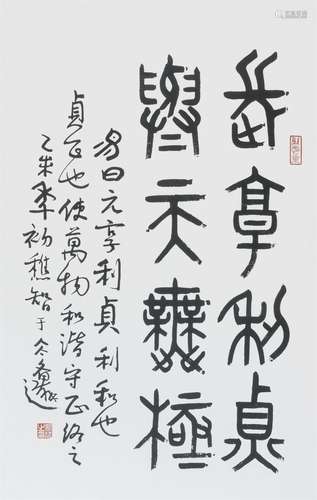 元亨利貞
與天無極
易曰元亨利貞利和也
貞正也使萬物和諧守正終之
乙未年初